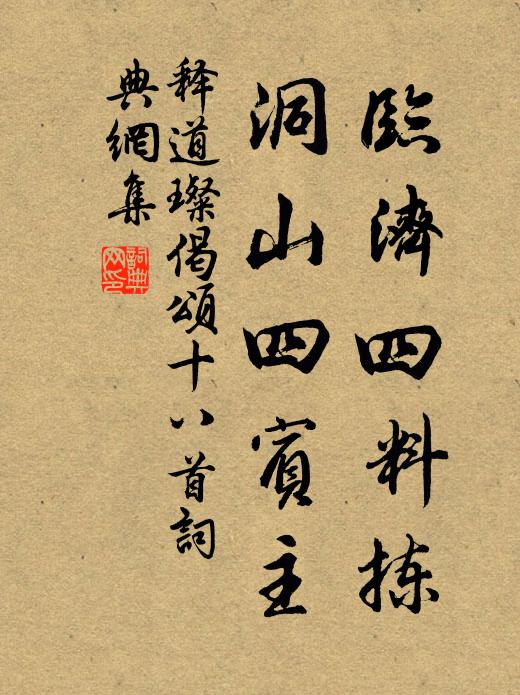 臨濟四料拣
洞山四賓主
释道璨偈頌十八首詞
典網集
詞典网印